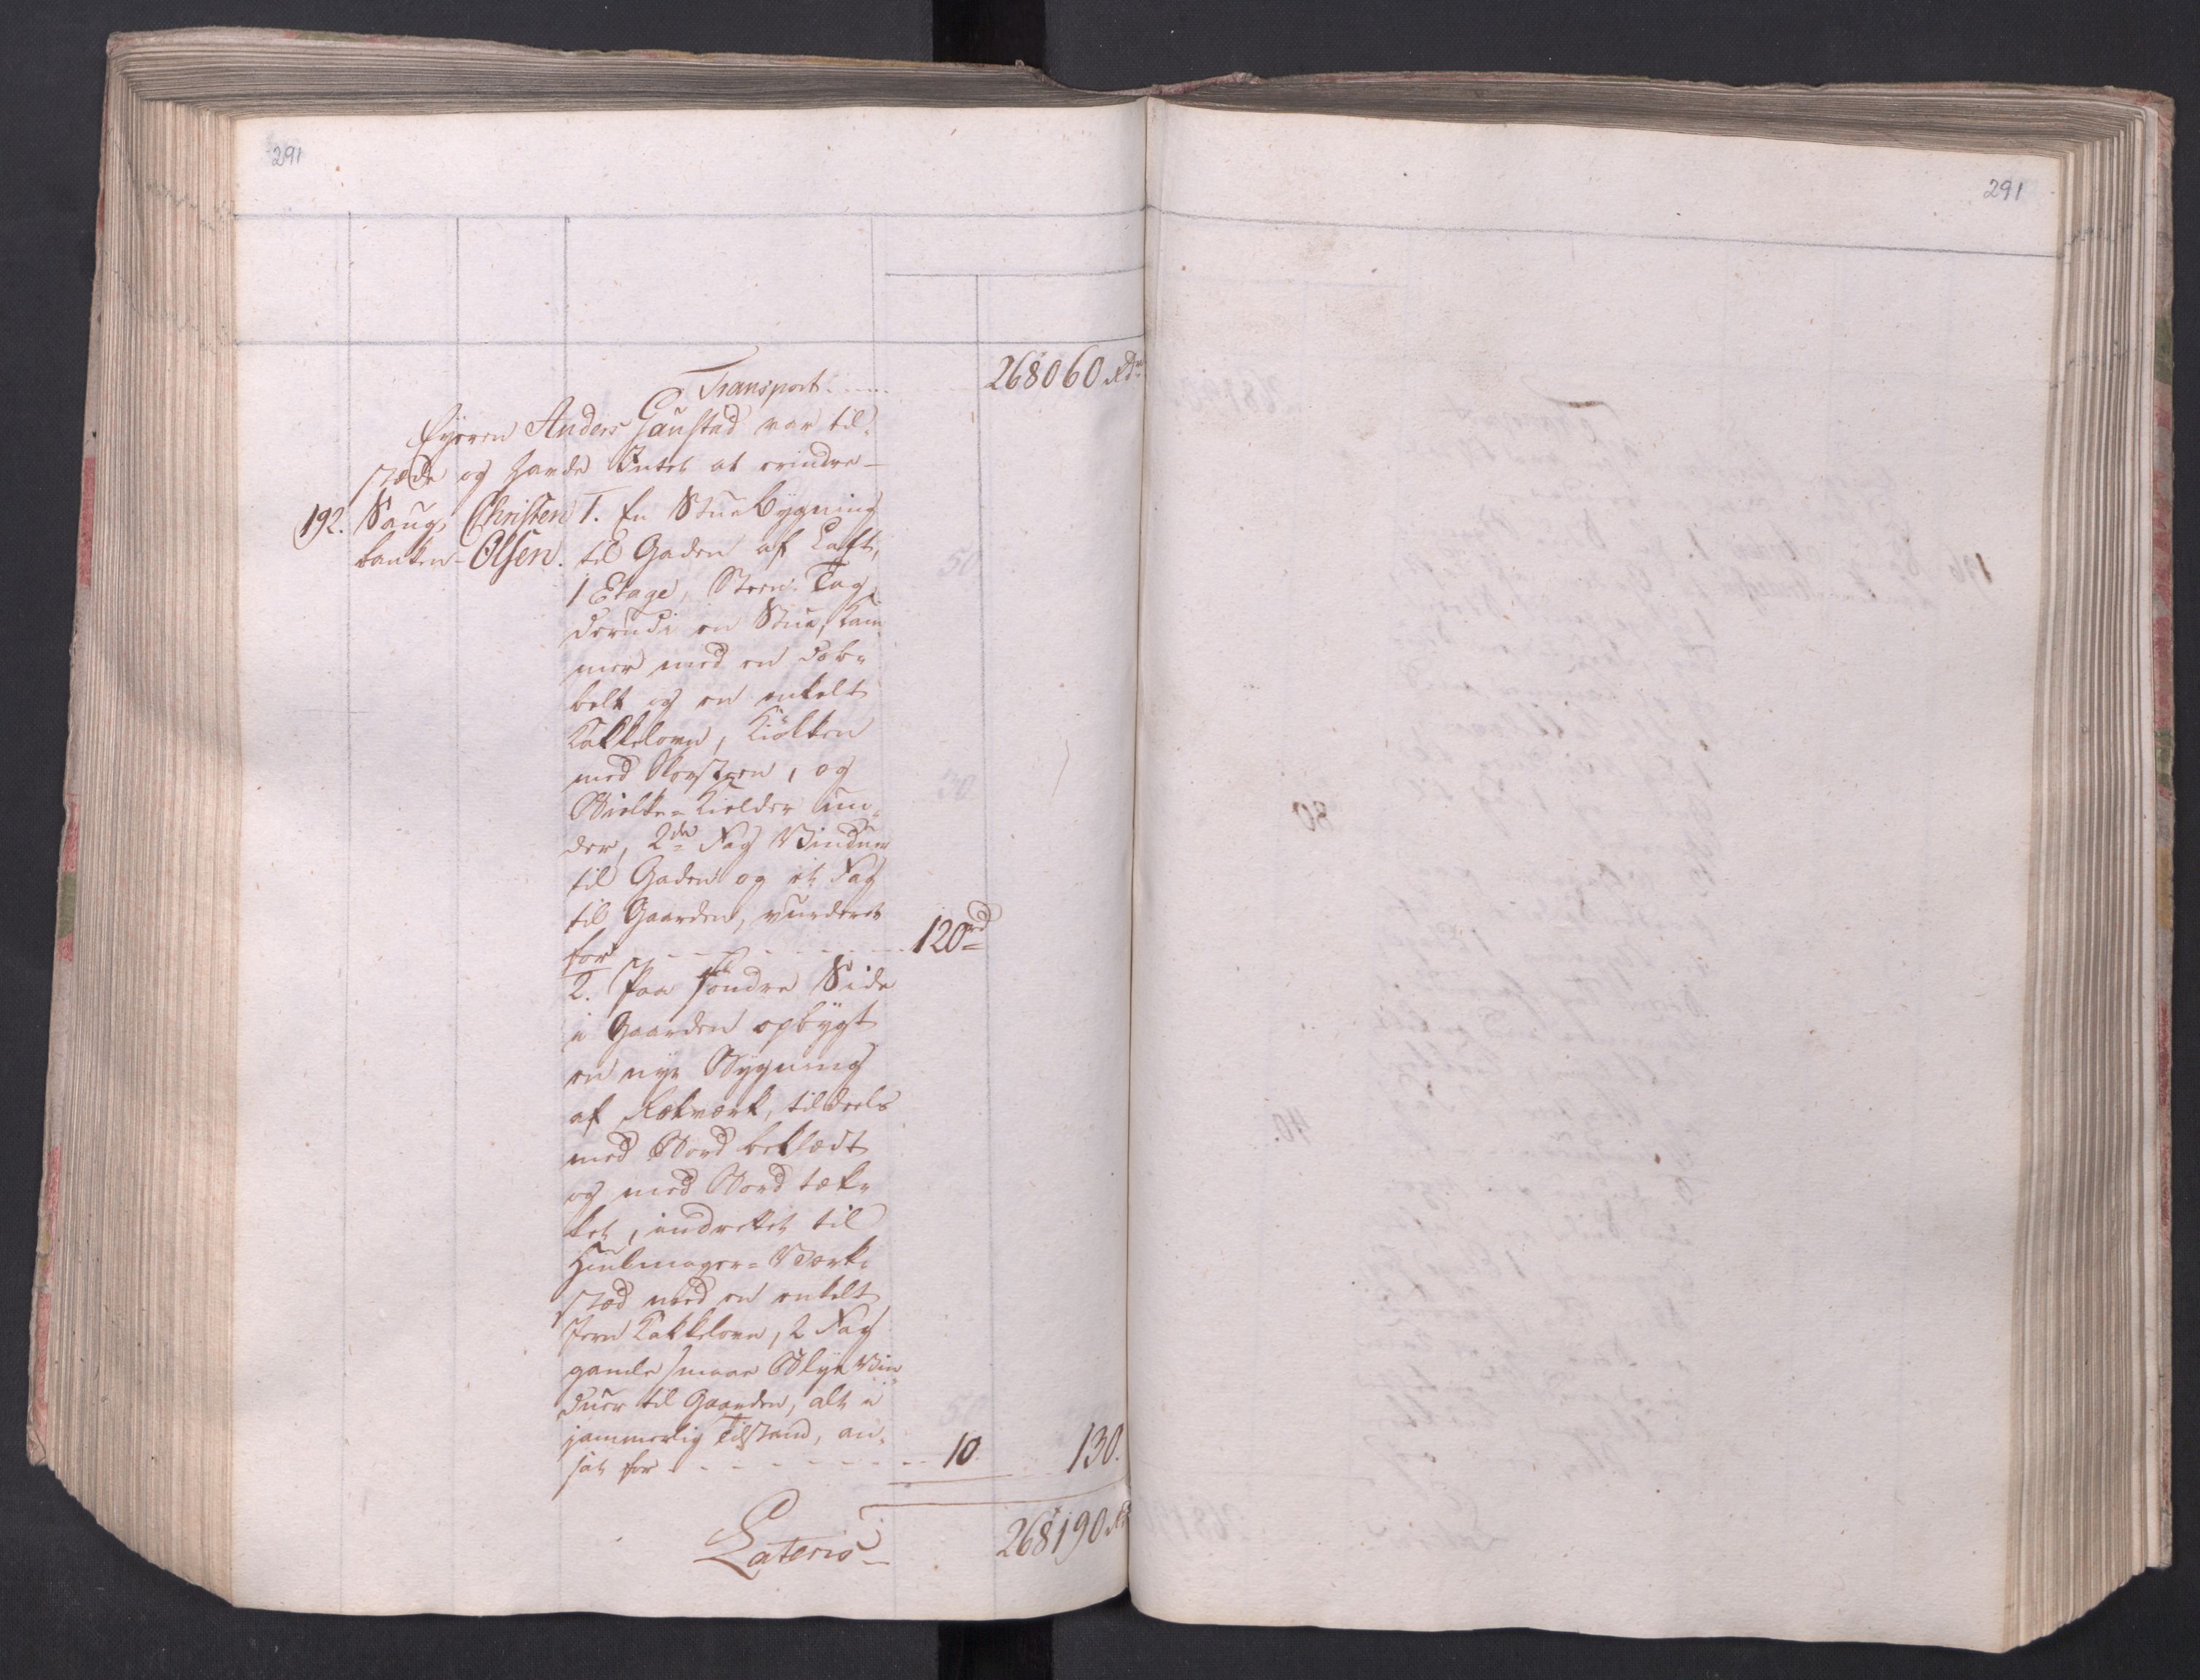 291
291
Transport . . . . . 268060 Rdr
Eyeren Anders Gaustad var til-
stæde og havde Intet at erindre -
192. Saug- Christen 1. En Stue Bygning
banken - Olsen. til Gaden af Laft,
1 Etage, Steen-Tag,
derudi en Stue, Kam-
mer med en dob-
belt og en enkelt
Kakkelovn, Kiøkken
med Skorsteen, og
Bielke-Kielder un-
der, 2de Fag Vinduer
til Gaden og et Fag
til Gaarden, vurderet
for - - - - - - 120rd
2. Paa søndre Side
i Gaarden opbygt
en nye Bygning
af Rekværk, tildeels
med Bord beklædt
og med Bord tæk-
ket, indrettet til
Hiulmager-Værk-
stæd med en enkelt
Jern Kakkelovn, 2 Fag
gamle smaae Blye Vin-
duer til Gaarden, alt i
jammerlig Tilstand, an-
sat for - - - - - - 10 130.
Lateris - 268190 Rd